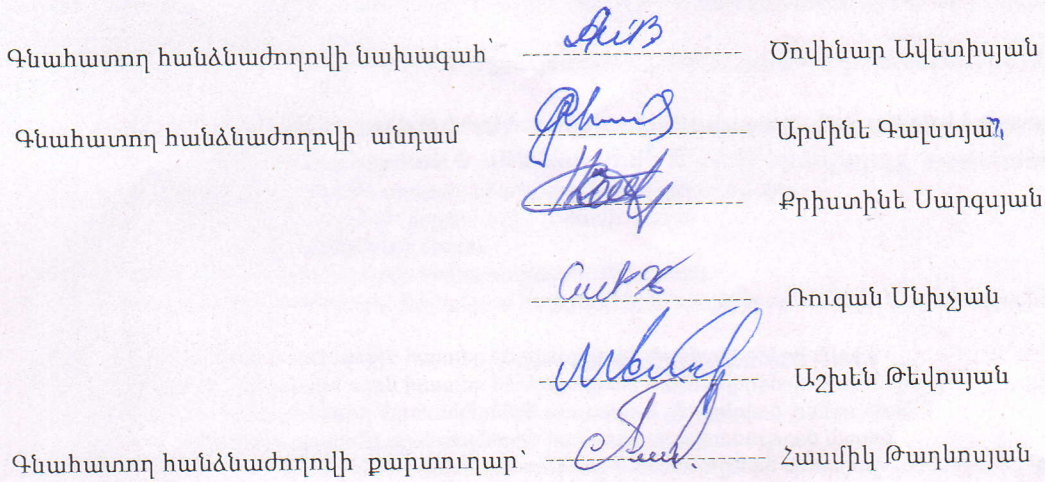 Գնահատող հանձնաժողովի նախագահ՝ Ծովինար Ավետիսյան
Գնահատող հանձնաժողովի անդամ Արմինե Գալստյան
Քրիստինե Սարգսյան
Ռուզան Մնխչյան
Աշխեն Թևոսյան
Գնահատող հանձնաժողովի քարտուղար՝ Հասմիկ Թադևոսյան